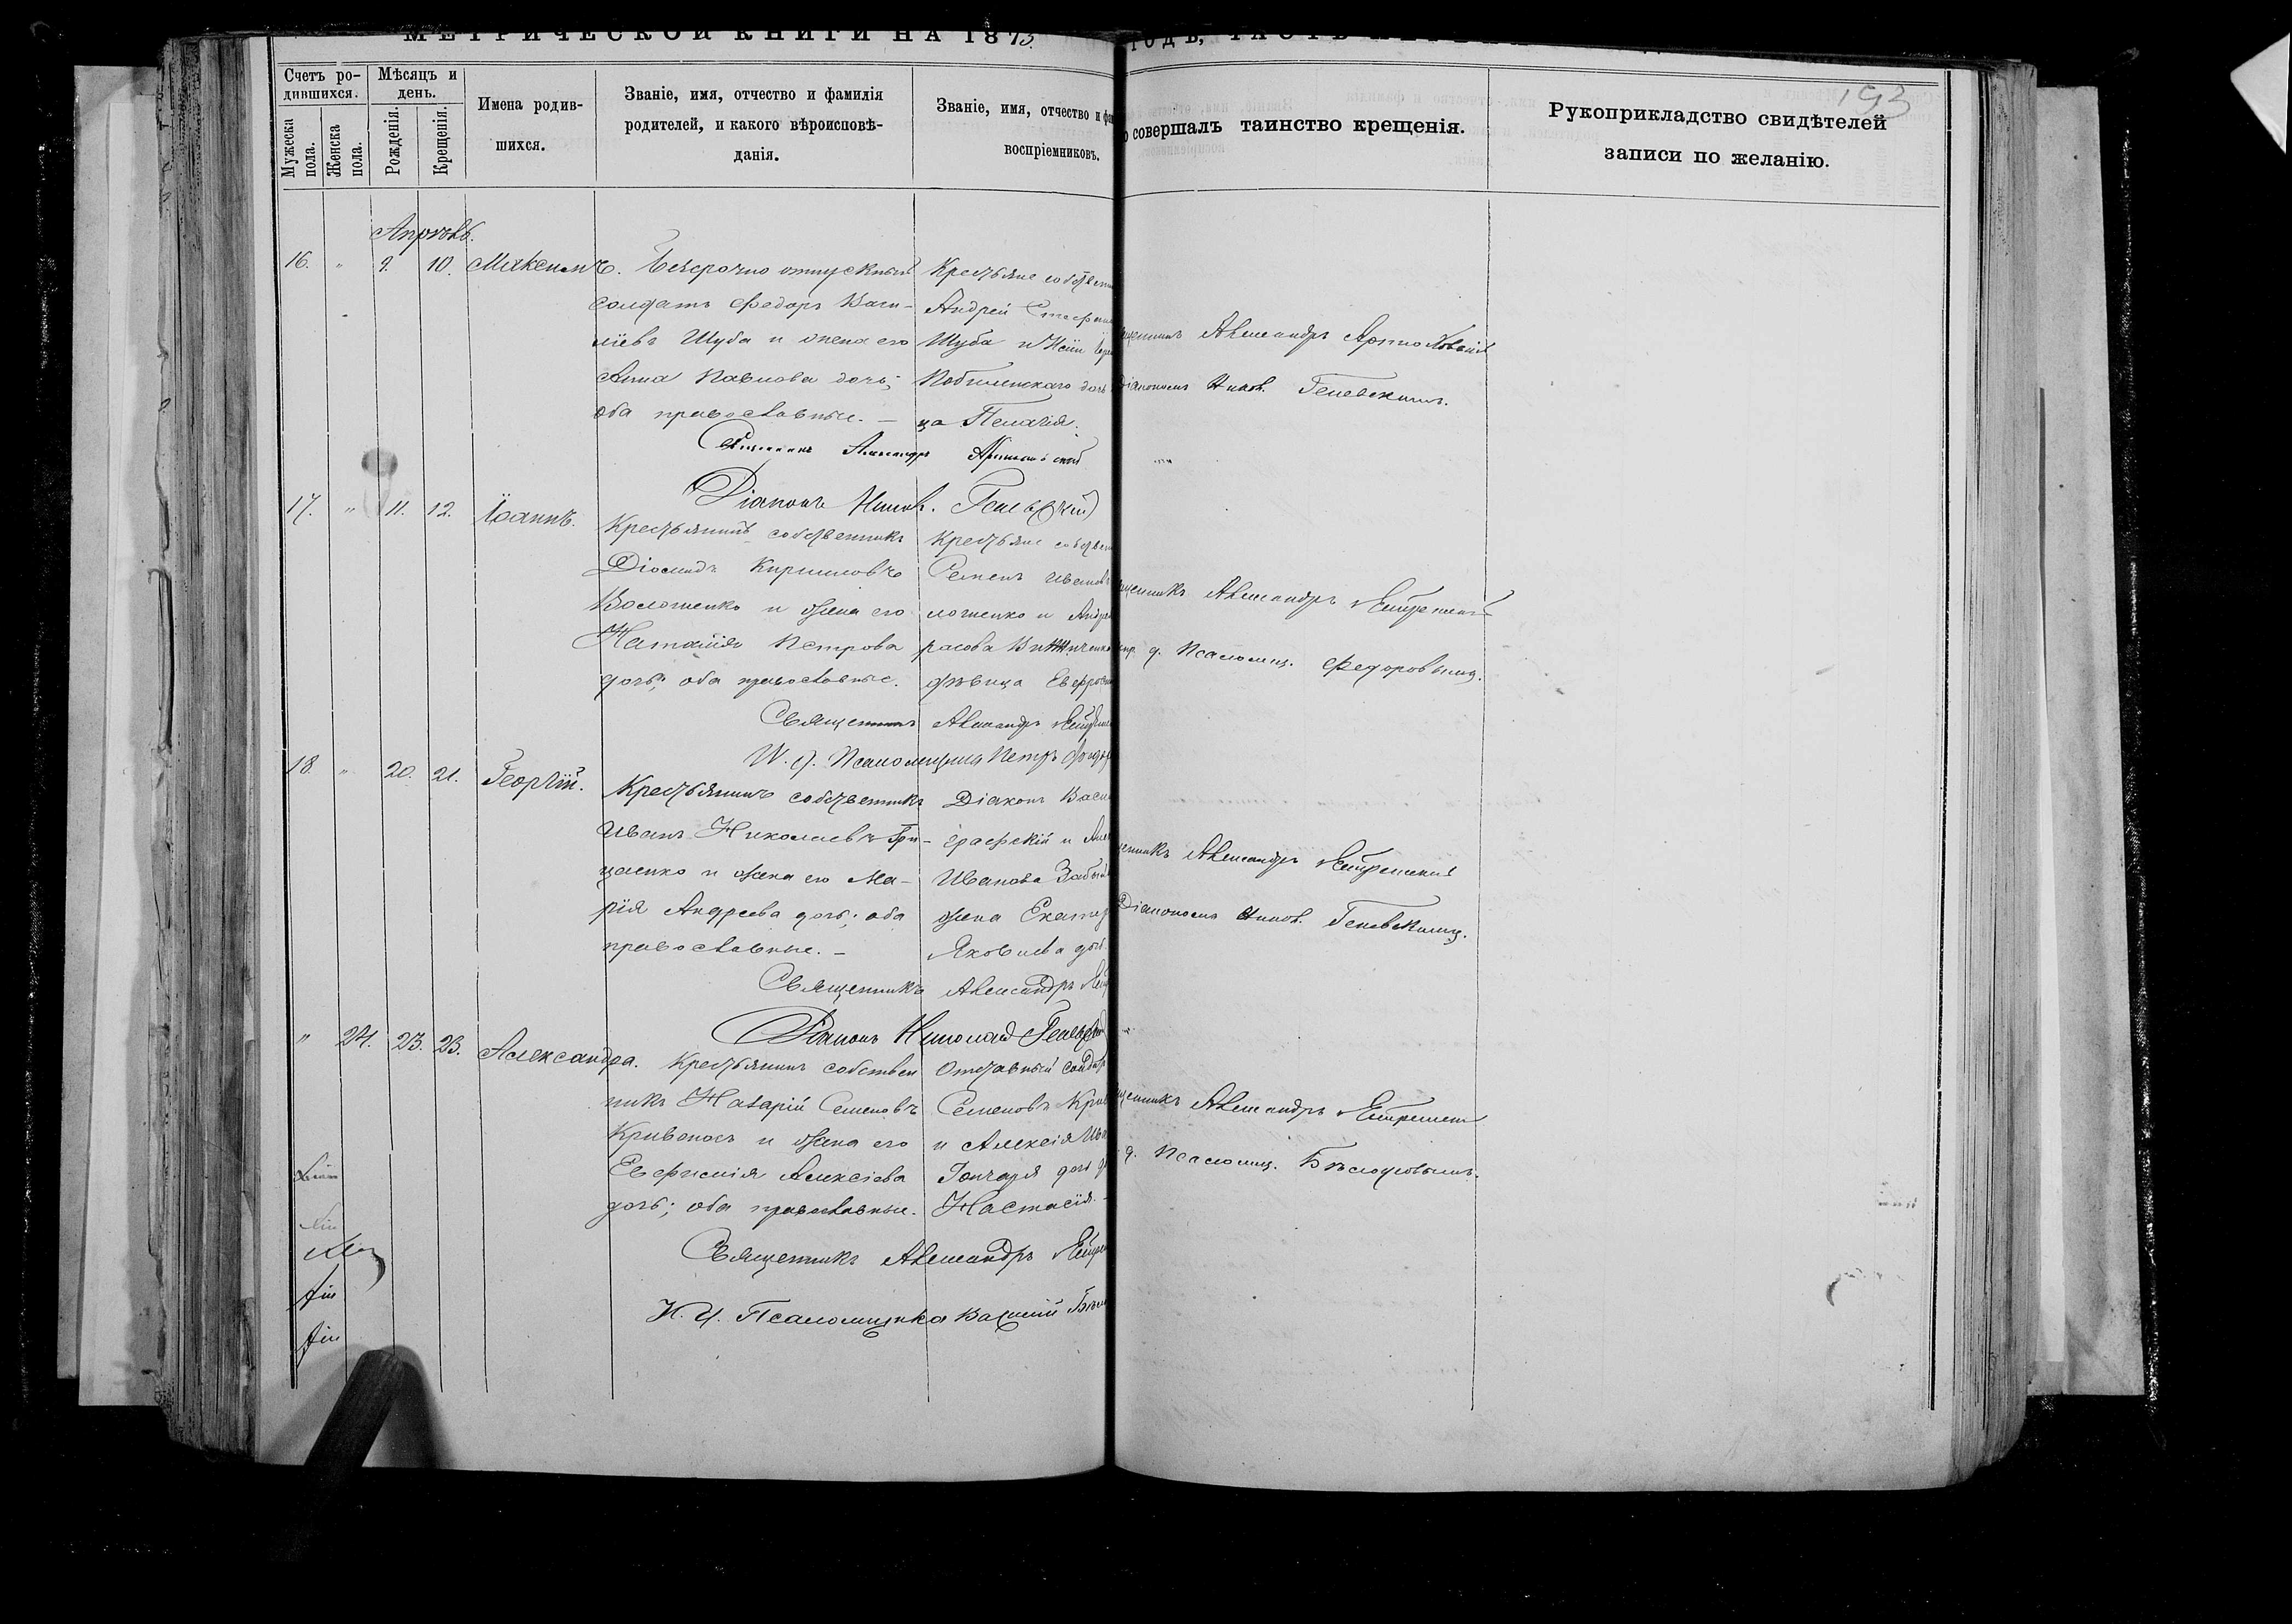 МЕТРИЧЕСКОЙ КНИГИ НА 1873
ГОДЪ, ЧАСТЬ
193
Счетъ ро-
дившихся.
Мужеска пола.
Женска пола.
Мѣсяцъ и
день.
Рожденія.
Крещенія.
Имена родив-
шихся.
Званіе, имя, отчество и фамилія
родителей, и какого вѣроисповѣ-
данія.
Званіе, имя, отчество и фа
воспріемниковъ.
совершалъ таинство крещенія.
Рукоприкладство свидѣтелей
записи по желанію.
Апрѣль.
16. " 9. 10. Максимъ.
Безсрочно отпускный
солдатъ Федоръ Васи-
ліевъ Шуба и жена его
Анна Павлова дочь;
оба православные. —
Крестьяне собствен
Андрей Стефан
Шуба и
дочь
ца Пелагія.
щенникъ Александръ
Діакономъ Никол. Гелевскимъ.
Священникъ Александръ
Діаконъ Никол. Гелевскій
17. " 11. 12. Іоаннъ.
Крестьянинъ собственникъ
Діомидъ Кирилловъ
Волошенко и жена его
Наталія Петрова
дочь; оба православные.
Крестьяне собствен
Семенъ Иванов
лошенко и Андре
расова
дѣвица Евфросин
щенникъ Александръ
д. Псаломщ. Федоровымъ.
Священникъ Александръ
И. д. Псаломщика Петръ Федор
18. " 20. 21. Георгій.
Крестьянинъ собственникъ
Иванъ Николаевъ Гри-
щенко и жена его Ма-
рія Андреева дочь; оба
православные. —
Діаконъ Васи
и
Иванова
жена Екатер
Яковлева доч.
щенникъ Александръ
Діакономъ Никол. Гелевскимъ.
Священникъ Александръ
Діаконъ Николай Гелевскій
" 24. 23. 23. Александра.
Крестьянинъ собствен
никъ Назарій Семеновъ
Кривонос и жена его
Евфимія Алексіева
дочь; оба православные.
Отставный солдат
Семеновъ Крив
и Алексія Ива
Гончаря дочь д
Настасія. —
щенникъ Александръ
д. Псаломщ. Бѣлодѣдовымъ.
Священникъ Александръ
И. д. Псаломщика Василій Бѣло